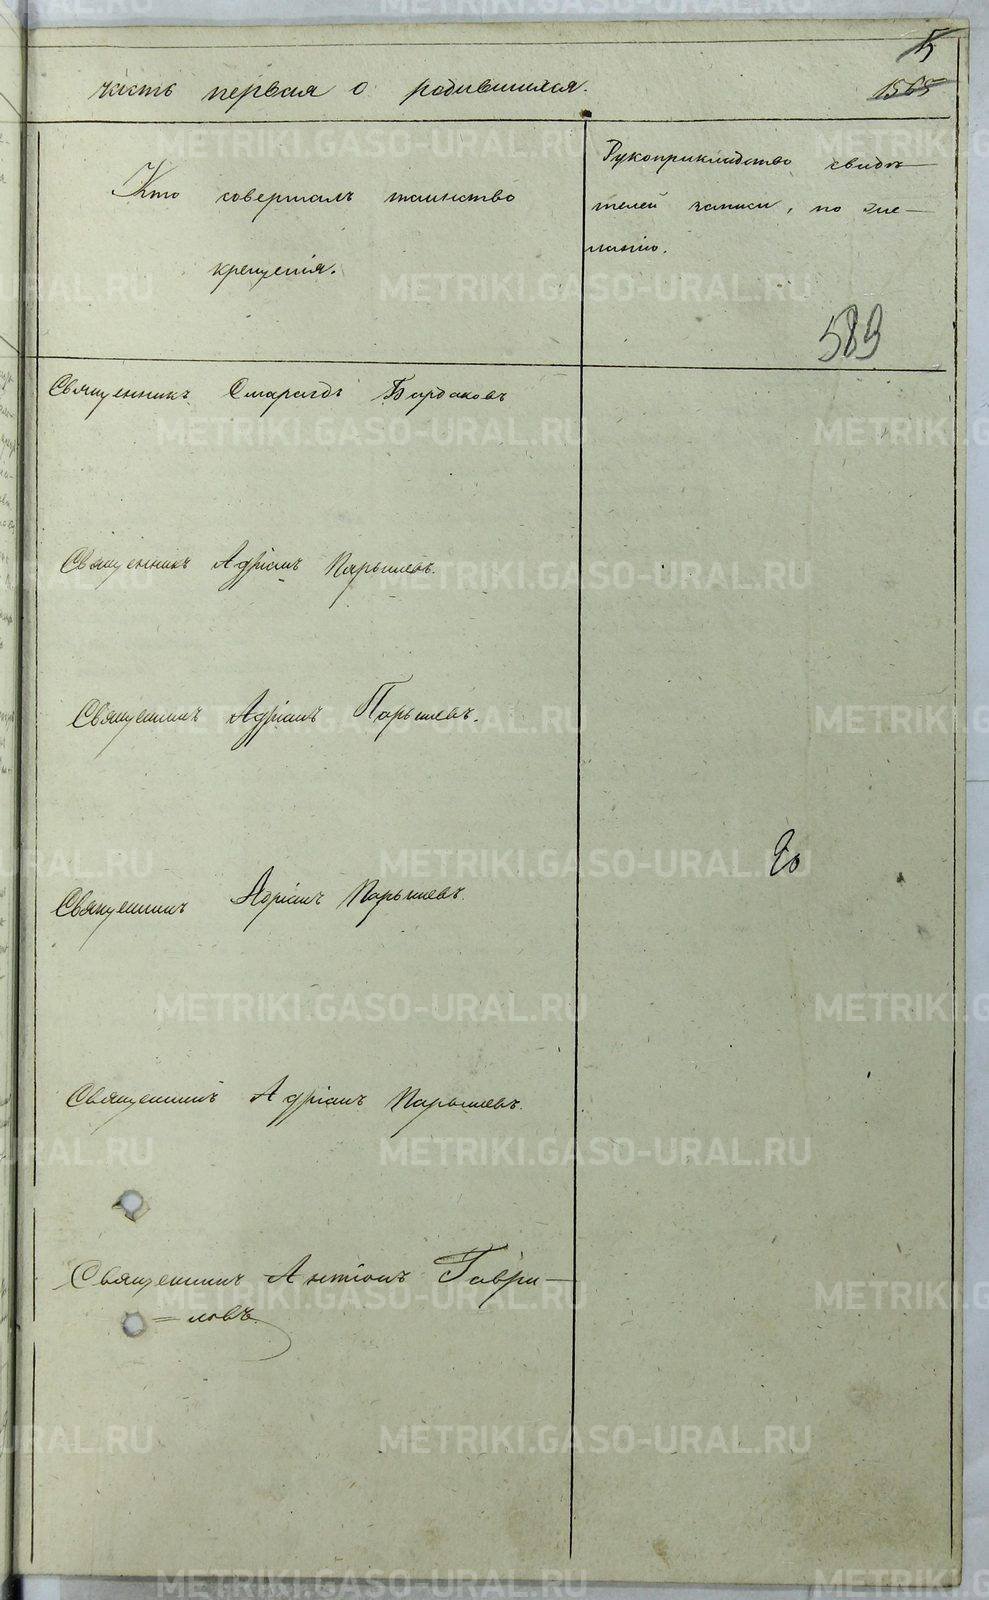 5
часть первая о родившихся.
1565
Кто совершалъ таинство
крещенія.
Рукоприкладство свидѣ—
телей записи, по же—
ланію.
589
Священникъ Смарагдъ Бардаковъ
Священникъ Адріанъ Парышевъ.
Священникъ Адріанъ Парышевъ.
Священникъ Адріанъ Парышевъ.
Священникъ Адріанъ Парышевъ.
Священникъ Антоній Гаври—
=ловъ.
METRIKI.GASO-URAL.RU